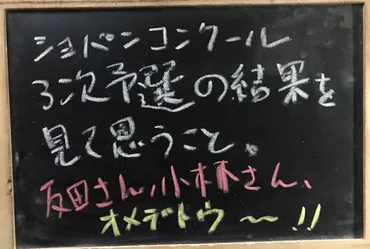 ショパンコンクール
3次予選の結果を
見て思うこと、
反田さん、小林さん、
オメデトウ〜!!